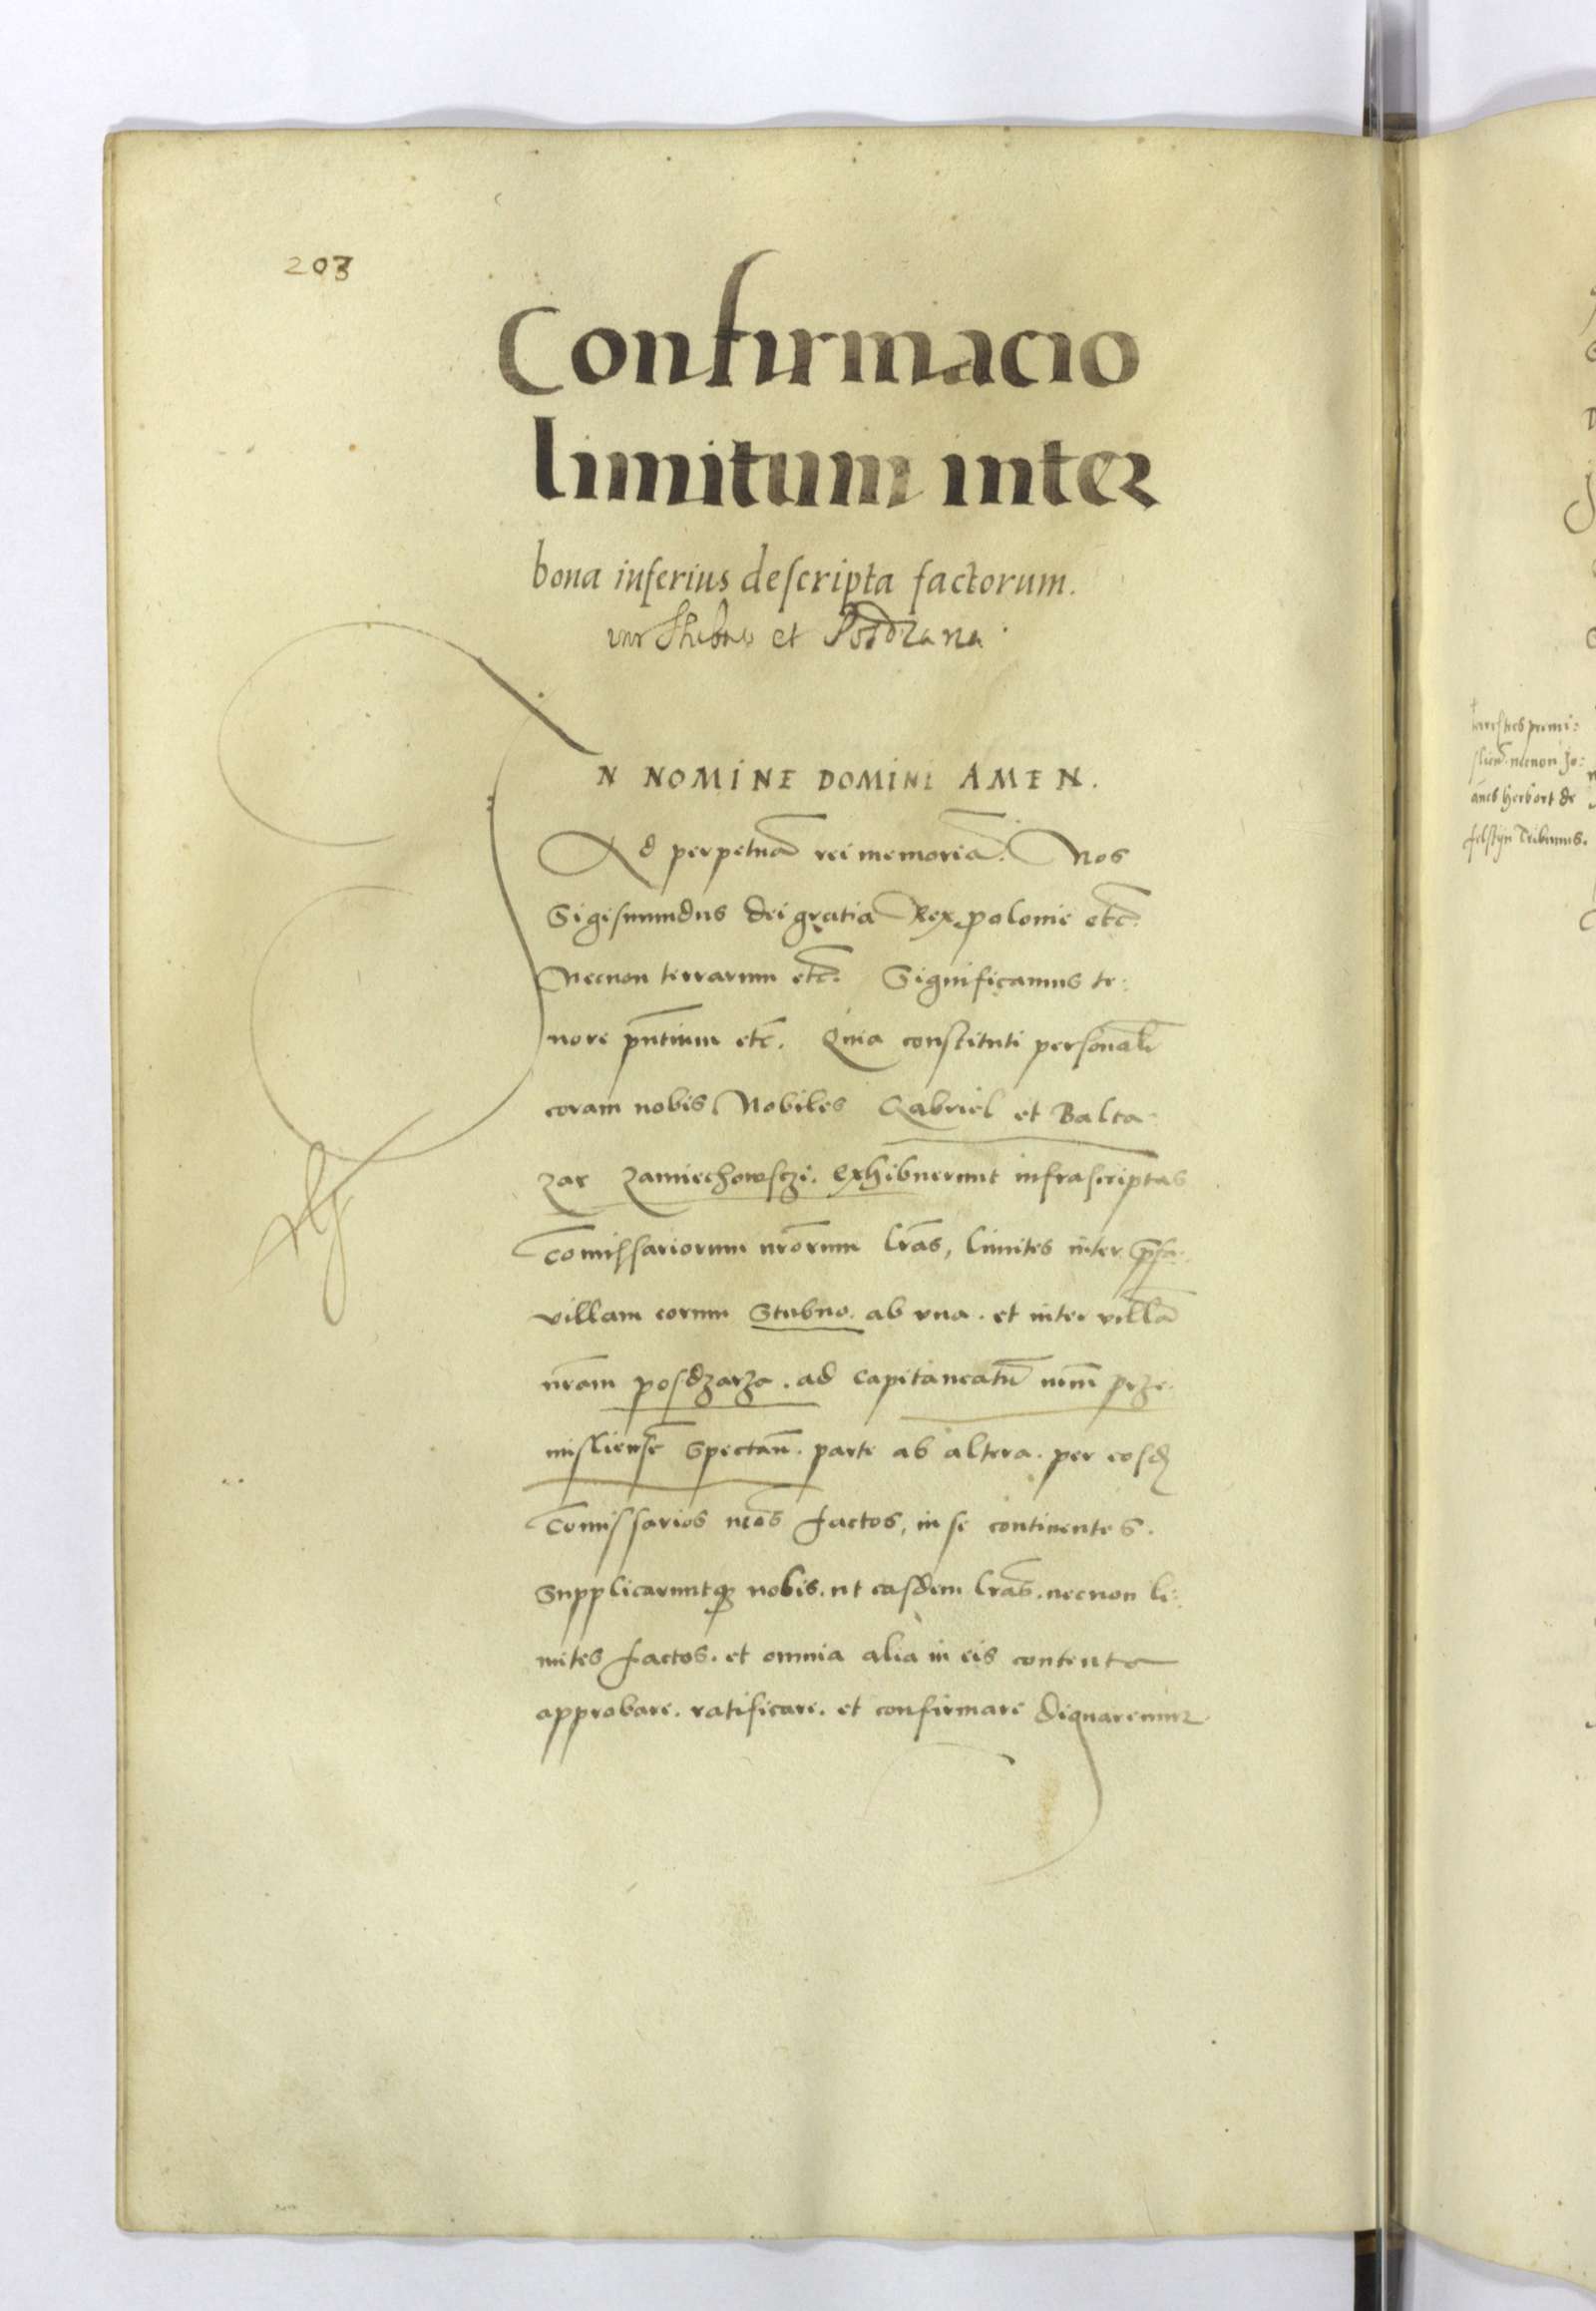 203
Confirmacio
limitum inter
bona inferius descripta factorum.
et
IN NOMINE DOMINI AMEN.
Ad perpetuā rei memoriā. Nos
Sigismundus dei gratia Rex polonie etc̄.
Necnon terrarum etc̄. Significamus te:
nore pn̄tium etc̄. Quia constituti personalr̄
coram nobis Nobiles Gabriel et Balta
zar Zamiechowsczi. exhibuerunt infrascriptas
Com̄issariorum nr̄orum lr̄as, limites inter
villam eorum Stubno. ab vna. et inter villā
nr̄am posdzarza. ad Capitaneatū nr̄m prze
misliensē Spectan̄. parte ab altera. per eosd̄
Com̄issarios nr̄os factos, in se continentes.
Supplicaruntq3 nobis. ut easdem lr̄as. necnon li:
mites factos. et omnia alia in eis contenta
approbare. ratificare. et confirmare dignaremur
sliens̄. necnon Jo:
anes herbort de
felstijn Tribunus.